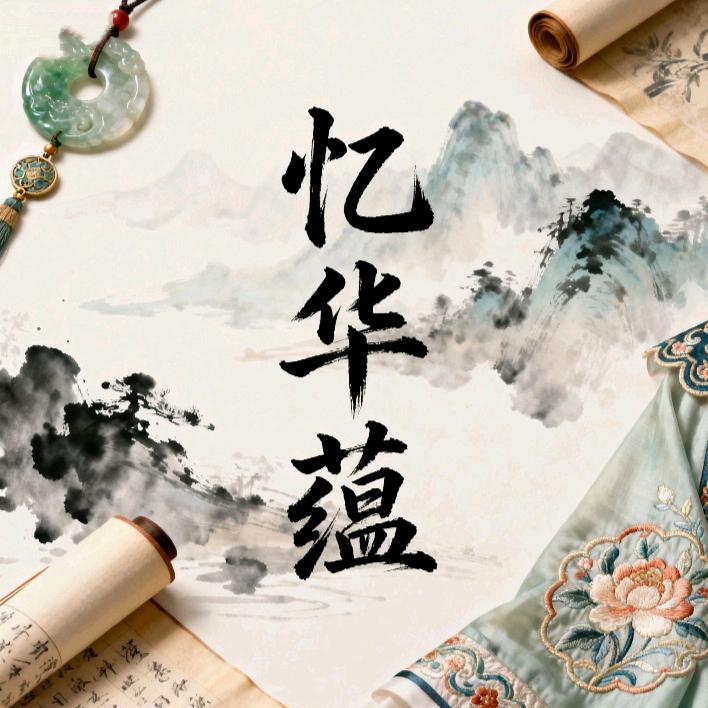 忆华蕴